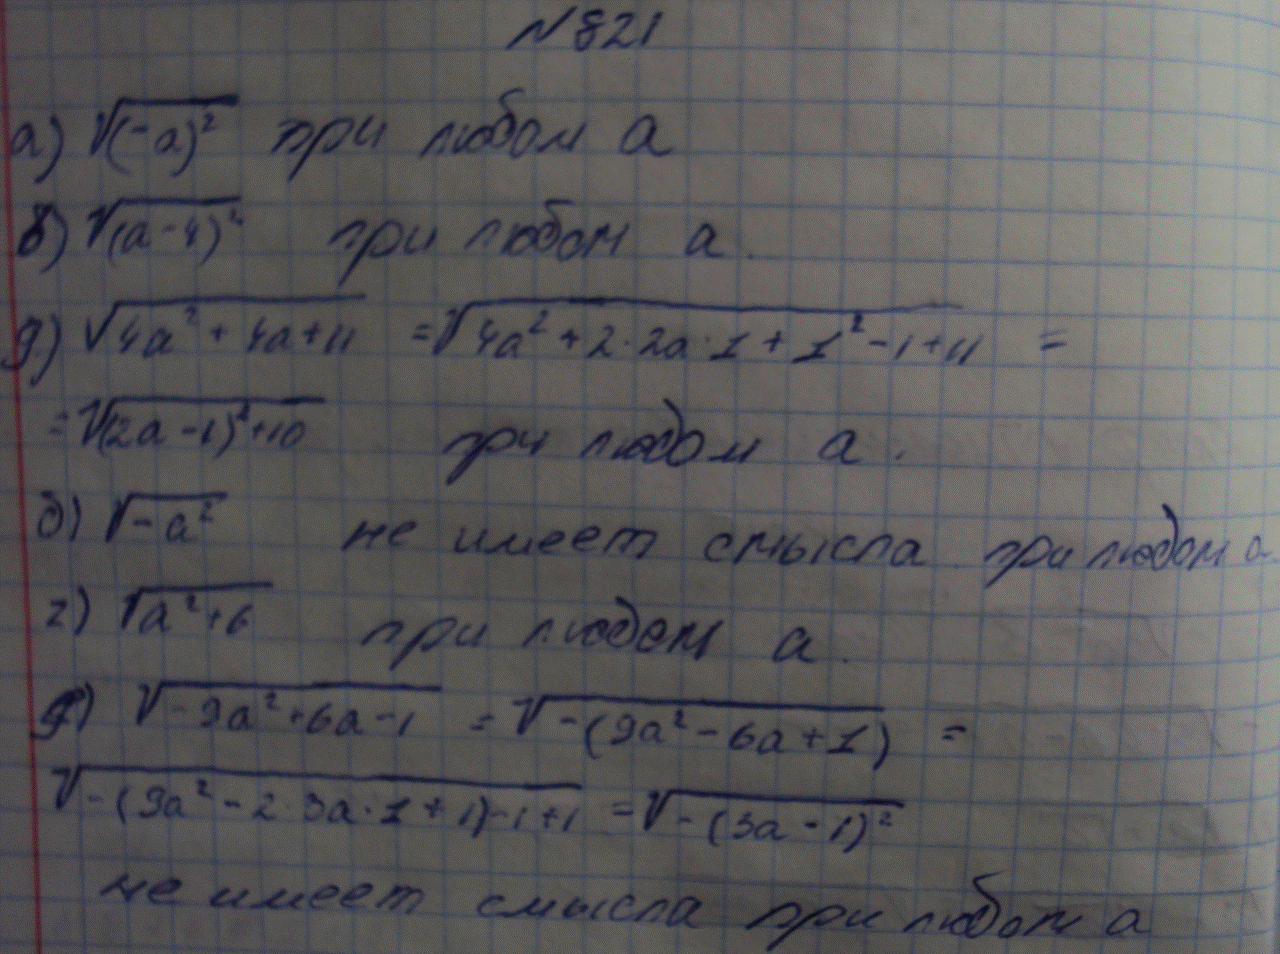 №821
а) √(-a)² при любом a
в) √(a-4)² при любом a.
д) √4a²+4a+11 = √4a²+2·2a·1+1²-1+11 =
= √(2a-1)²+10 при любом a.
б) √-a² не имеет смысла при любом a
г) √a²+6 при любом a.
е) √-9a²+6a-1 = √-(9a²-6a+1) =
√-(9a²-2·3a·1+1)-1+1 = √-(3a-1)²
не имеет смысла при любом a